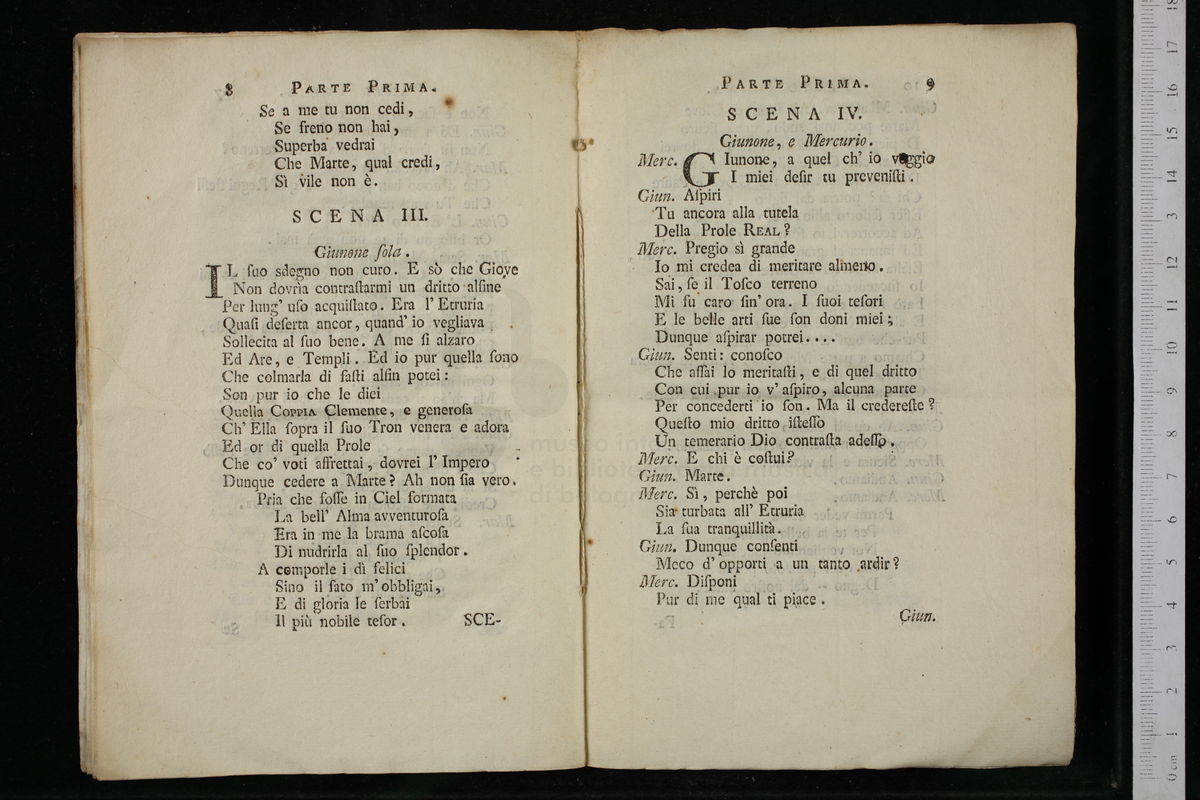 8 PARTE PRIMA.
Se a me tu non cedi,
Se freno non hai,
Superba vedrai
Che Marte, qual credi,
Sì vile non è.
SCENA III.
Giunone ſola.
IL ſuo sdegno non curo. E sò che Giove
Non dovria contraſtarmi un dritto alfine
Per lung' uſo acquiſtato. Era l' Etruria
Quaſi deſerta ancor, quand' io vegliava
Sollecita al ſuo bene. A me ſi alzaro
Ed Are, e Templi. Ed io pur quella ſono
Che colmarla di faſti alfin potei:
Son pur io che le diei
Quella COPPIA Clemente, e generoſa
Ch' Ella ſopra il ſuo Tron venera e adora
Ed or di quella Prole
Che co' voti affrettai, dovrei l' Impero
Dunque cedere a Marte? Ah non ſia vero.
Pria che foſſe in Ciel formata
La bell' Alma avventuroſa
Era in me la brama aſcoſa
Di nudrirla al ſuo ſplendor.
A comporle i dì felici
Sino il fato m' obbligai,
E di gloria le ſerbai
Il più nobile teſor.
SCE-
PARTE PRIMA. 9
SCENA IV.
Giunone, e Mercurio.
Merc. GIunone, a quel ch' io veggio
I miei deſir tu preveniſti.
Giun. Aſpiri
Tu ancora alla tutela
Della Prole REAL?
Merc. Pregio sì grande
Io mi credea di meritare almeno.
Sai, ſe il Toſco terreno
Mi fu caro fin' ora. I ſuoi teſori
E le belle arti ſue ſon doni miei;
Dunque aſpirar potrei....
Giun. Senti: conoſco
Che aſſai lo meritaſti, e di quel dritto
Con cui pur io v' aſpiro, alcuna parte
Per concederti io ſon. Ma il credereſte?
Queſto mio dritto iſteſſo
Un temerario Dio contraſta adeſſo.
Merc. E chi è coſtui?
Giun. Marte.
Merc. Sì, perchè poi
Sia turbata all' Etruria
La ſua tranquillità.
Giun. Dunque conſenti
Meco d' opporti a un tanto ardir?
Merc. Diſponi
Pur di me qual ti piace.
Giun.